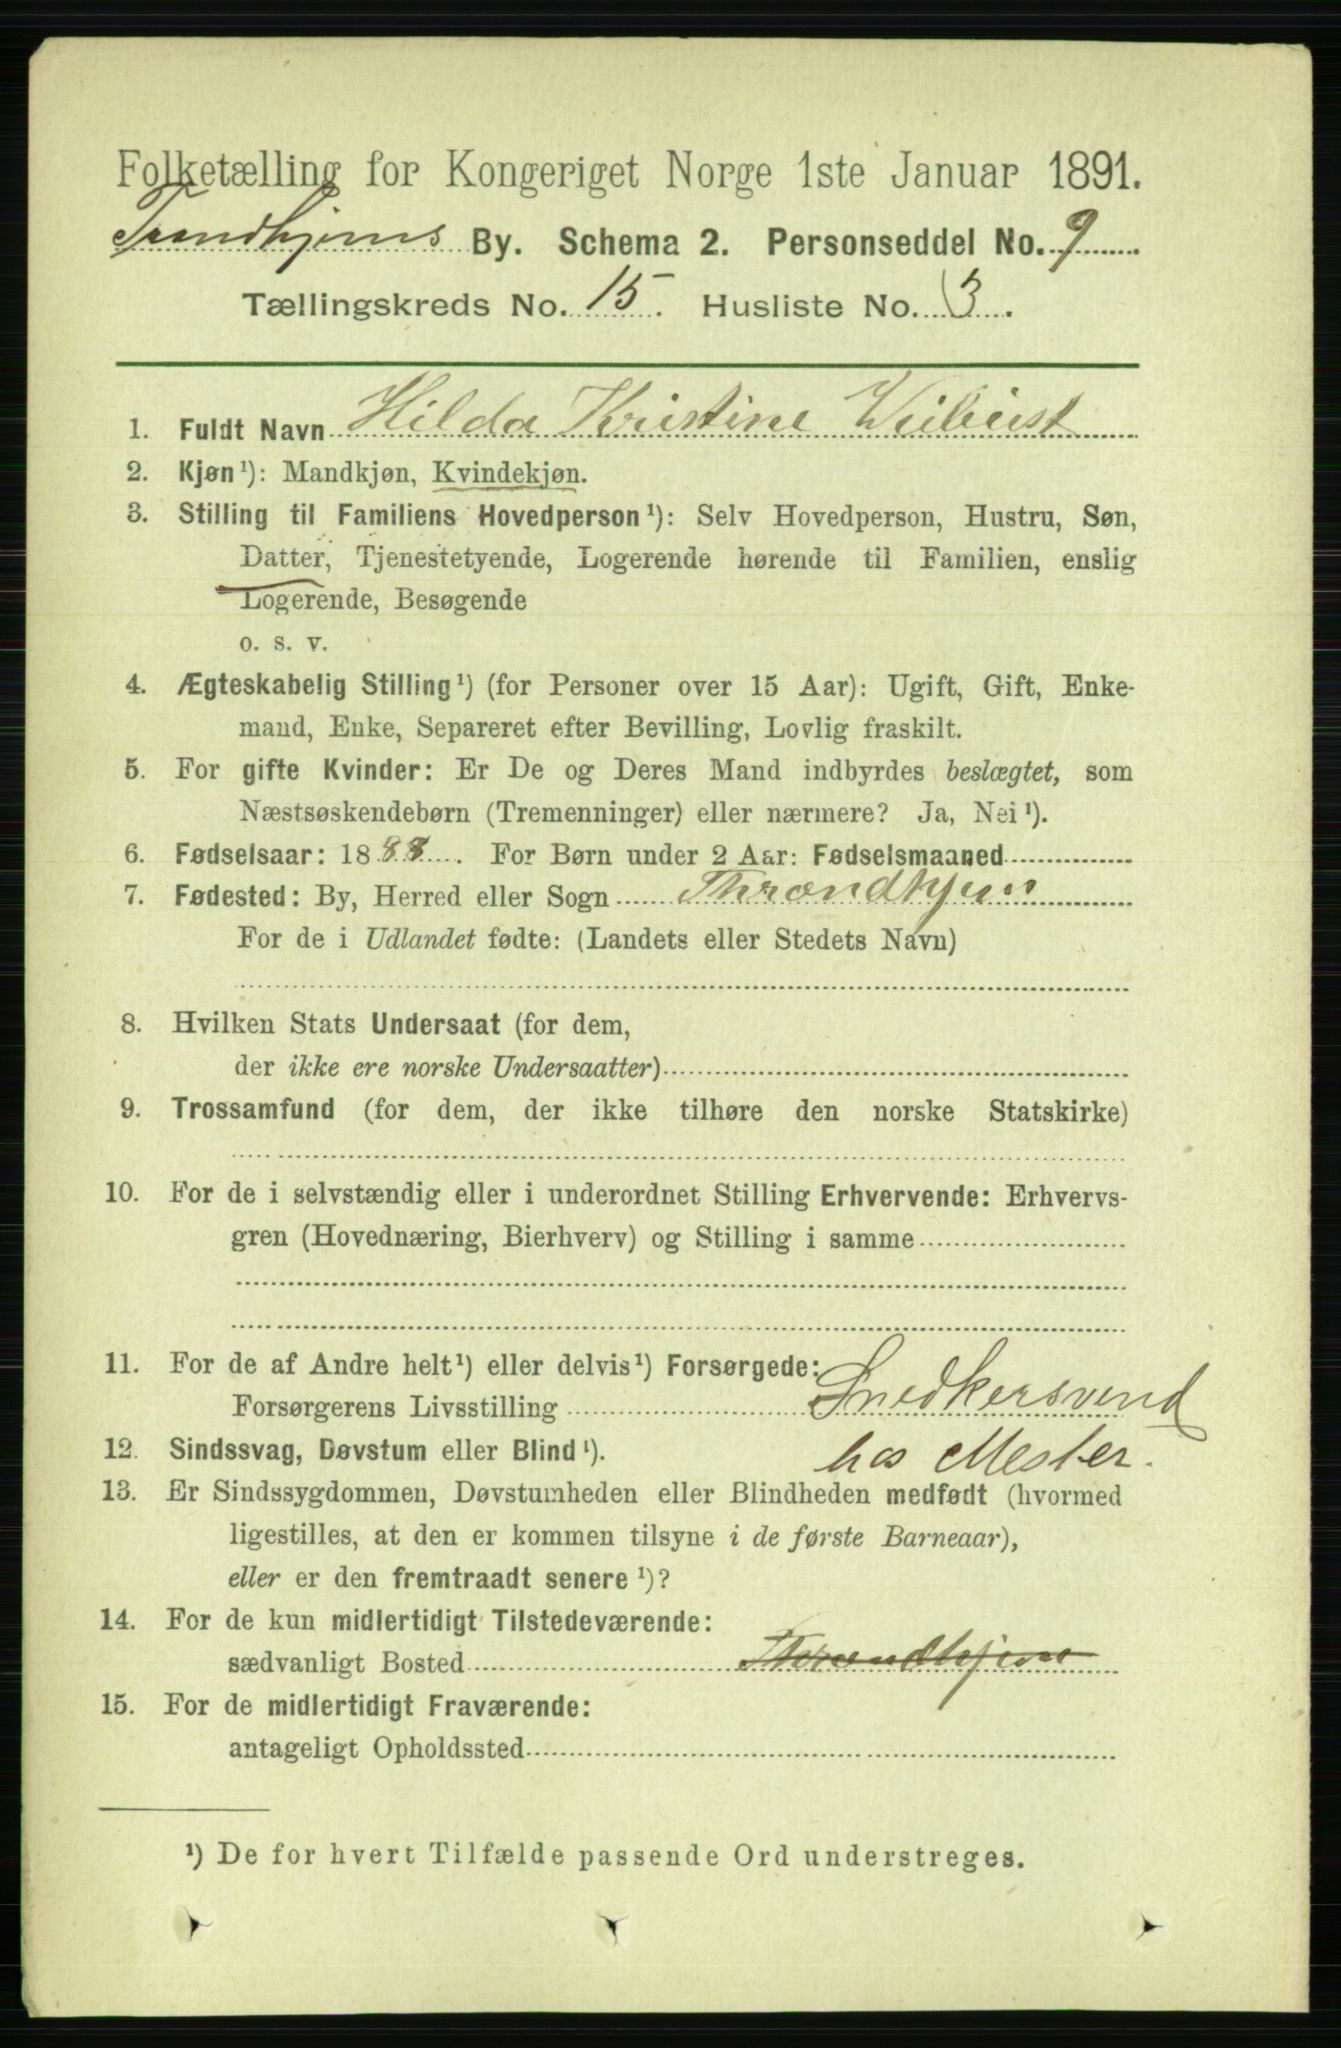 Folketælling for Kongeriget Norge 1ste Januar 1891.
Trondhjems By. Schema 2. Personseddel No. 9
Tællingskreds No. 15. Husliste No. 3.
1. Fuldt Navn Hilda Kristine
2. Kjøn¹): Mandkjøn, Kvindekjøn.
3. Stilling til Familiens Hovedperson¹): Selv Hovedperson, Hustru, Søn,
Datter, Tjenestetyende, Logerende hørende til Familien, enslig
Logerende, Besøgende
o. s. v.
4. Ægteskabelig Stilling¹) (for Personer over 15 Aar): Ugift, Gift, Enke-
mand, Enke, Separeret efter Bevilling, Lovlig fraskilt.
5. For gifte Kvinder: Er De og Deres Mand indbyrdes beslægtet, som
Næstsøskendebørn (Tremenninger) eller nærmere? Ja, Nei¹).
6. Fødselsaar: 1888. For Børn under 2 Aar: Fødselsmaaned
7. Fødested: By, Herred eller Sogn Throndhjem
For de i Udlandet fødte: (Landets eller Stedets Navn)
8. Hvilken Stats Undersaat (for dem,
der ikke ere norske Undersaatter)
9. Trossamfund (for dem, der ikke tilhøre den norske Statskirke)
10. For de i selvstændig eller i underordnet Stilling Erhvervende: Erhvervs-
gren (Hovednæring, Bierhverv) og Stilling i samme
11. For de af Andre helt¹) eller delvis¹) Forsørgede:
Forsørgerens Livsstilling Snedkersvend
12. Sindssvag, Døvstum eller Blind¹). hos Mester.
13. Er Sindssygdommen, Døvstumheden eller Blindheden medfødt (hvormed
ligestilles, at den er kommen tilsyne i de første Barneaar),
eller er den fremtraadt senere¹)?
14. For de kun midlertidigt Tilstedeværende:
sædvanligt Bosted Throndhjem
15. For de midlertidigt Fraværende:
antageligt Opholdssted
¹) De for hvert Tilfælde passende Ord understreges.